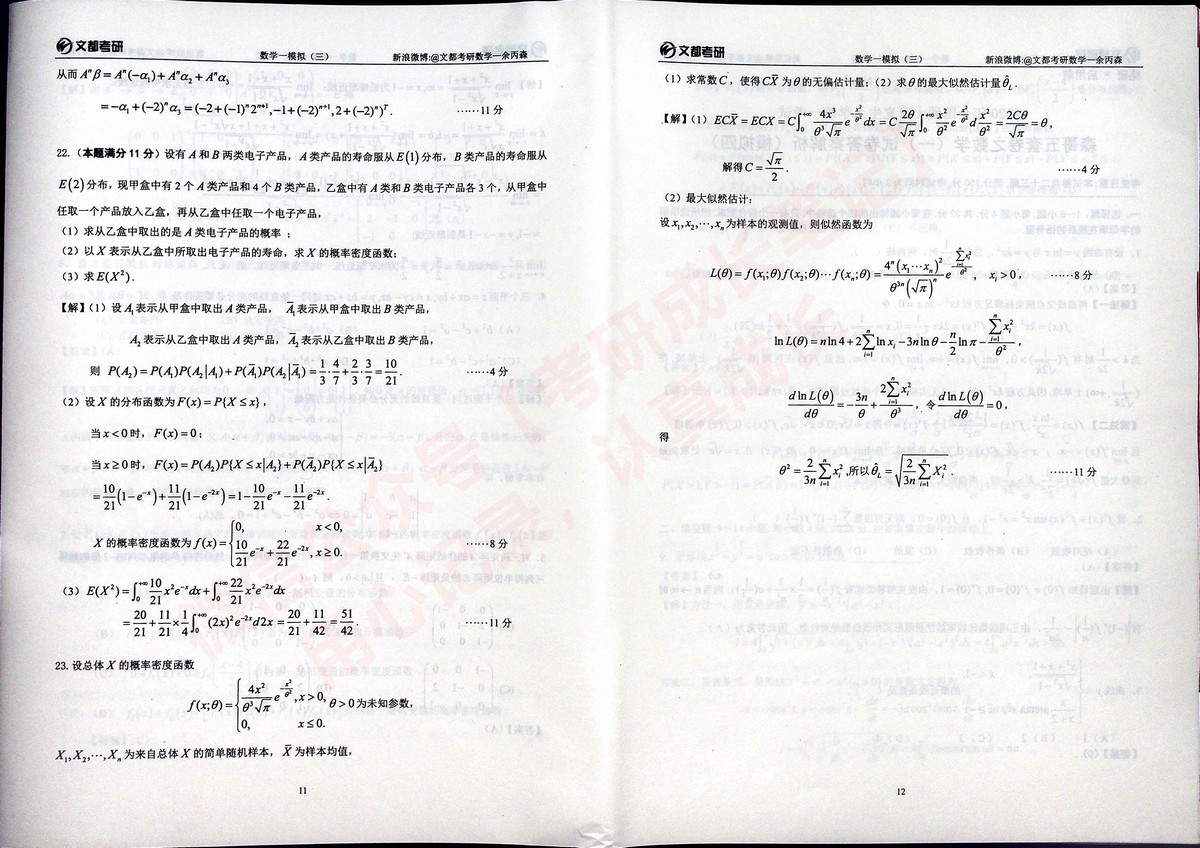 文都考研
数学一模拟（三） 新浪微博:@文都考研数学一余丙森
从而 Aⁿβ = Aⁿ(−α₁) + Aⁿα₂ + Aⁿα₃
= −α₁ + (−2)ⁿα₃ = (−2+(−1)ⁿ2ⁿ⁺¹, −1+(−2)ⁿ⁺¹, 2+(−2)ⁿ)ᵀ. ⋯⋯11 分
22.（本题满分 11 分）设有 A 和 B 两类电子产品，A 类产品的寿命服从 E(1) 分布，B 类产品的寿命服从
E(2) 分布，现甲盒中有 2 个 A 类产品和 4 个 B 类产品，乙盒中有 A 类和 B 类电子产品各 3 个，从甲盒中
任取一个产品放入乙盒，再从乙盒中任取一个电子产品，
（1）求从乙盒中取出的是 A 类电子产品的概率；
（2）以 X 表示从乙盒中所取出电子产品的寿命，求 X 的概率密度函数；
（3）求 E(X²).
【解】（1）设 A₁ 表示从甲盒中取出 A 类产品， A̅₁ 表示从甲盒中取出 B 类产品，
A₂ 表示从乙盒中取出 A 类产品，A̅₂ 表示从乙盒中取出 B 类产品，
则 P(A₂) = P(A₁)P(A₂|A₁) + P(A̅₁)P(A₂|A̅₁) = 1/3·4/7 + 2/3·3/7 = 10/21. ⋯⋯4 分
（2）设 X 的分布函数为 F(x) = P{X ≤ x}，
当 x < 0 时，F(x) = 0；
当 x ≥ 0 时，F(x) = P(A₂)P{X ≤ x|A₂} + P(A̅₂)P{X ≤ x|A̅₂}
= 10/21(1−e⁻ˣ) + 11/21(1−e⁻²ˣ) = 1 − 10/21 e⁻ˣ − 11/21 e⁻²ˣ.
X 的概率密度函数为 f(x) = { 0, x<0, 10/21 e⁻ˣ + 22/21 e⁻²ˣ, x ≥ 0. ⋯⋯8 分
（3）E(X²) = ∫₀^{+∞} 10/21 x²e⁻ˣdx + ∫₀^{+∞} 22/21 x²e⁻²ˣdx
= 20/21 + 11/21 × 1/4 ∫₀^{+∞} (2x)² e⁻²ˣd2x = 20/21 + 11/42 = 51/42. ⋯⋯11 分
23. 设总体 X 的概率密度函数
f(x;θ) = { 4x²/(θ³√π) e^{−x²/θ²}, x>0, 0, x≤0. θ > 0 为未知参数，
X₁, X₂, ⋯, Xₙ 为来自总体 X 的简单随机样本，X̅ 为样本均值，
11
文都考研
数学一模拟（三） 新浪微博:@文都考研数学一余丙森
（1）求常数 C，使得 CX̅ 为 θ 的无偏估计量；（2）求 θ 的最大似然估计量 θ̂_L.
【解】（1）ECX̅ = ECX = C∫₀^{+∞} 4x³/(θ³√π) e^{−x²/θ²} dx = C 2θ/√π ∫₀^{+∞} x²/θ² e^{−x²/θ²} d x²/θ² = 2Cθ/√π = θ，
解得 C = √π/2. ⋯⋯4 分
（2）最大似然估计：
设 x₁, x₂, ⋯, xₙ 为样本的观测值，则似然函数为
L(θ) = f(x₁;θ)f(x₂;θ)⋯f(xₙ;θ) = 4ⁿ(x₁⋯xₙ)²/(θ³ⁿ(√π)ⁿ) e^{−∑_{i=1}^{n} xᵢ²/θ²}, xᵢ > 0, ⋯⋯8 分
ln L(θ) = n ln 4 + 2∑_{i=1}^{n} ln xᵢ − 3n ln θ − n/2 ln π − ∑_{i=1}^{n} xᵢ²/θ²，
d ln L(θ)/dθ = −3n/θ + 2∑_{i=1}^{n} xᵢ²/θ³，令 d ln L(θ)/dθ = 0，
得
θ² = 2/3n ∑_{i=1}^{n} xᵢ², 所以 θ̂_L = √(2/3n ∑_{i=1}^{n} Xᵢ²). ⋯⋯11 分
12